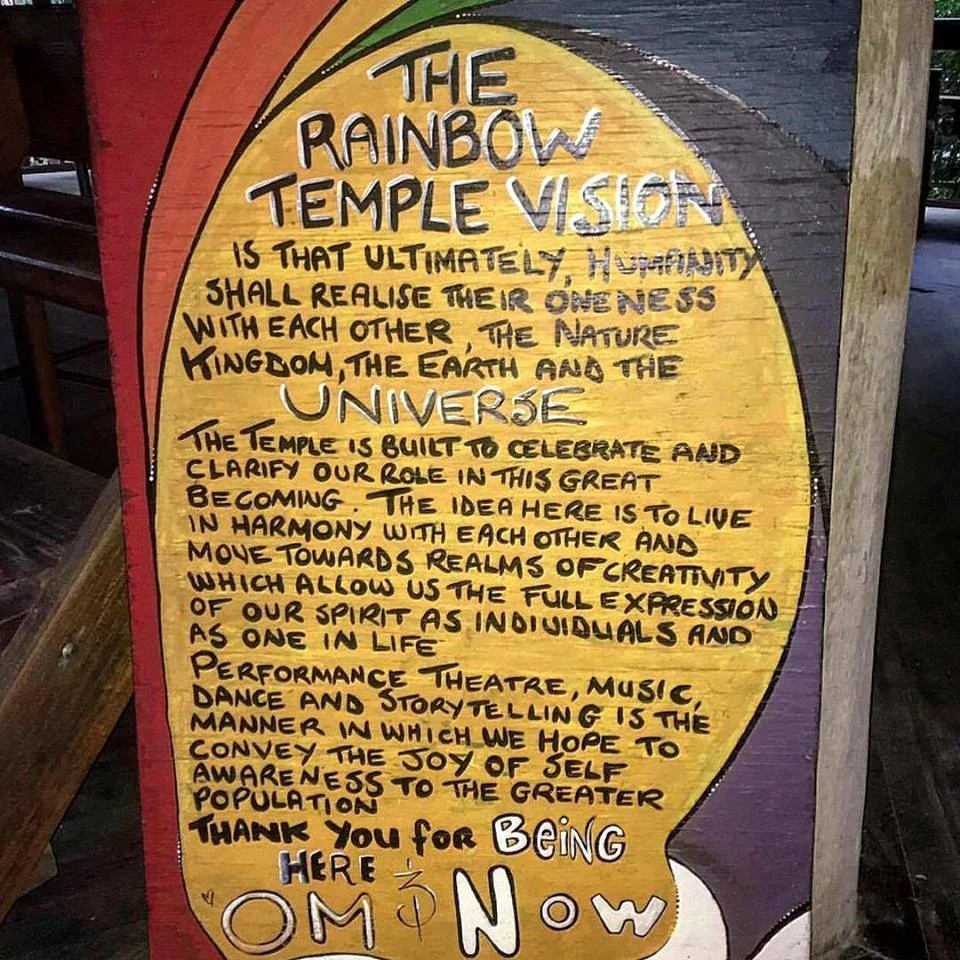 THE
RAINBOW
TEMPLE VISION
IS THAT ULTIMATELY, HUMANITY
SHALL REALISE THEIR ONENESS
WITH EACH OTHER, THE NATURE
KINGDOM, THE EARTH AND THE
UNIVERSE
THE TEMPLE IS BUILT TO CELEBRATE AND
CLARIFY OUR ROLE IN THIS GREAT
BECOMING. THE IDEA HERE IS TO LIVE
IN HARMONY WITH EACH OTHER AND
MOVE TOWARDS REALMS OF CREATIVITY
WHICH ALLOW US THE FULL EXPRESSION
OF OUR SPIRIT AS INDIVIDUALS AND
AS ONE IN LIFE
PERFORMANCE THEATRE, MUSIC,
DANCE AND STORYTELLING IS THE
MANNER IN WHICH WE HOPE TO
CONVEY THE JOY OF SELF
AWARENESS TO THE GREATER
POPULATION
THANK YOU for BeiNG
HERE &
OM NOW